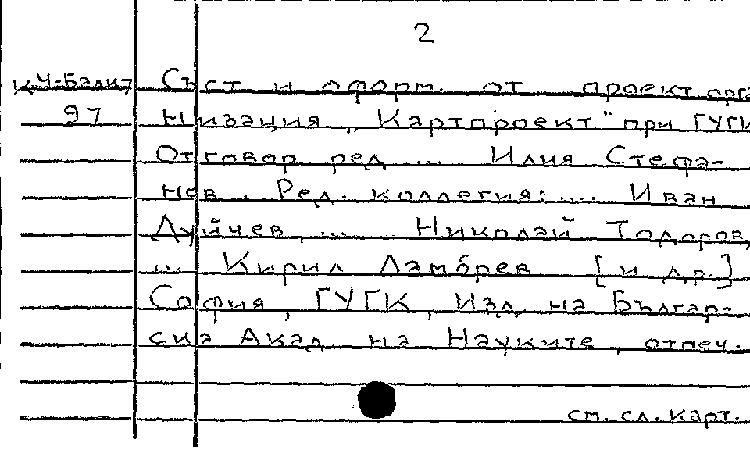 2
К Ч-Балк7 Съст и оформ. от проект. орга
97 низация „Картпроект" при ГУГК
Отговор ред. ... Илия Стефа-
нов. Ред. коллегия: ... Иван
Дуйчев, ... Николай Тодоров,
... Кирил Ламбрев [и др.]
София, ГУГК, Изд. на Българ-
ска Акад. на Науките, отпеч.
см. сл. карт.